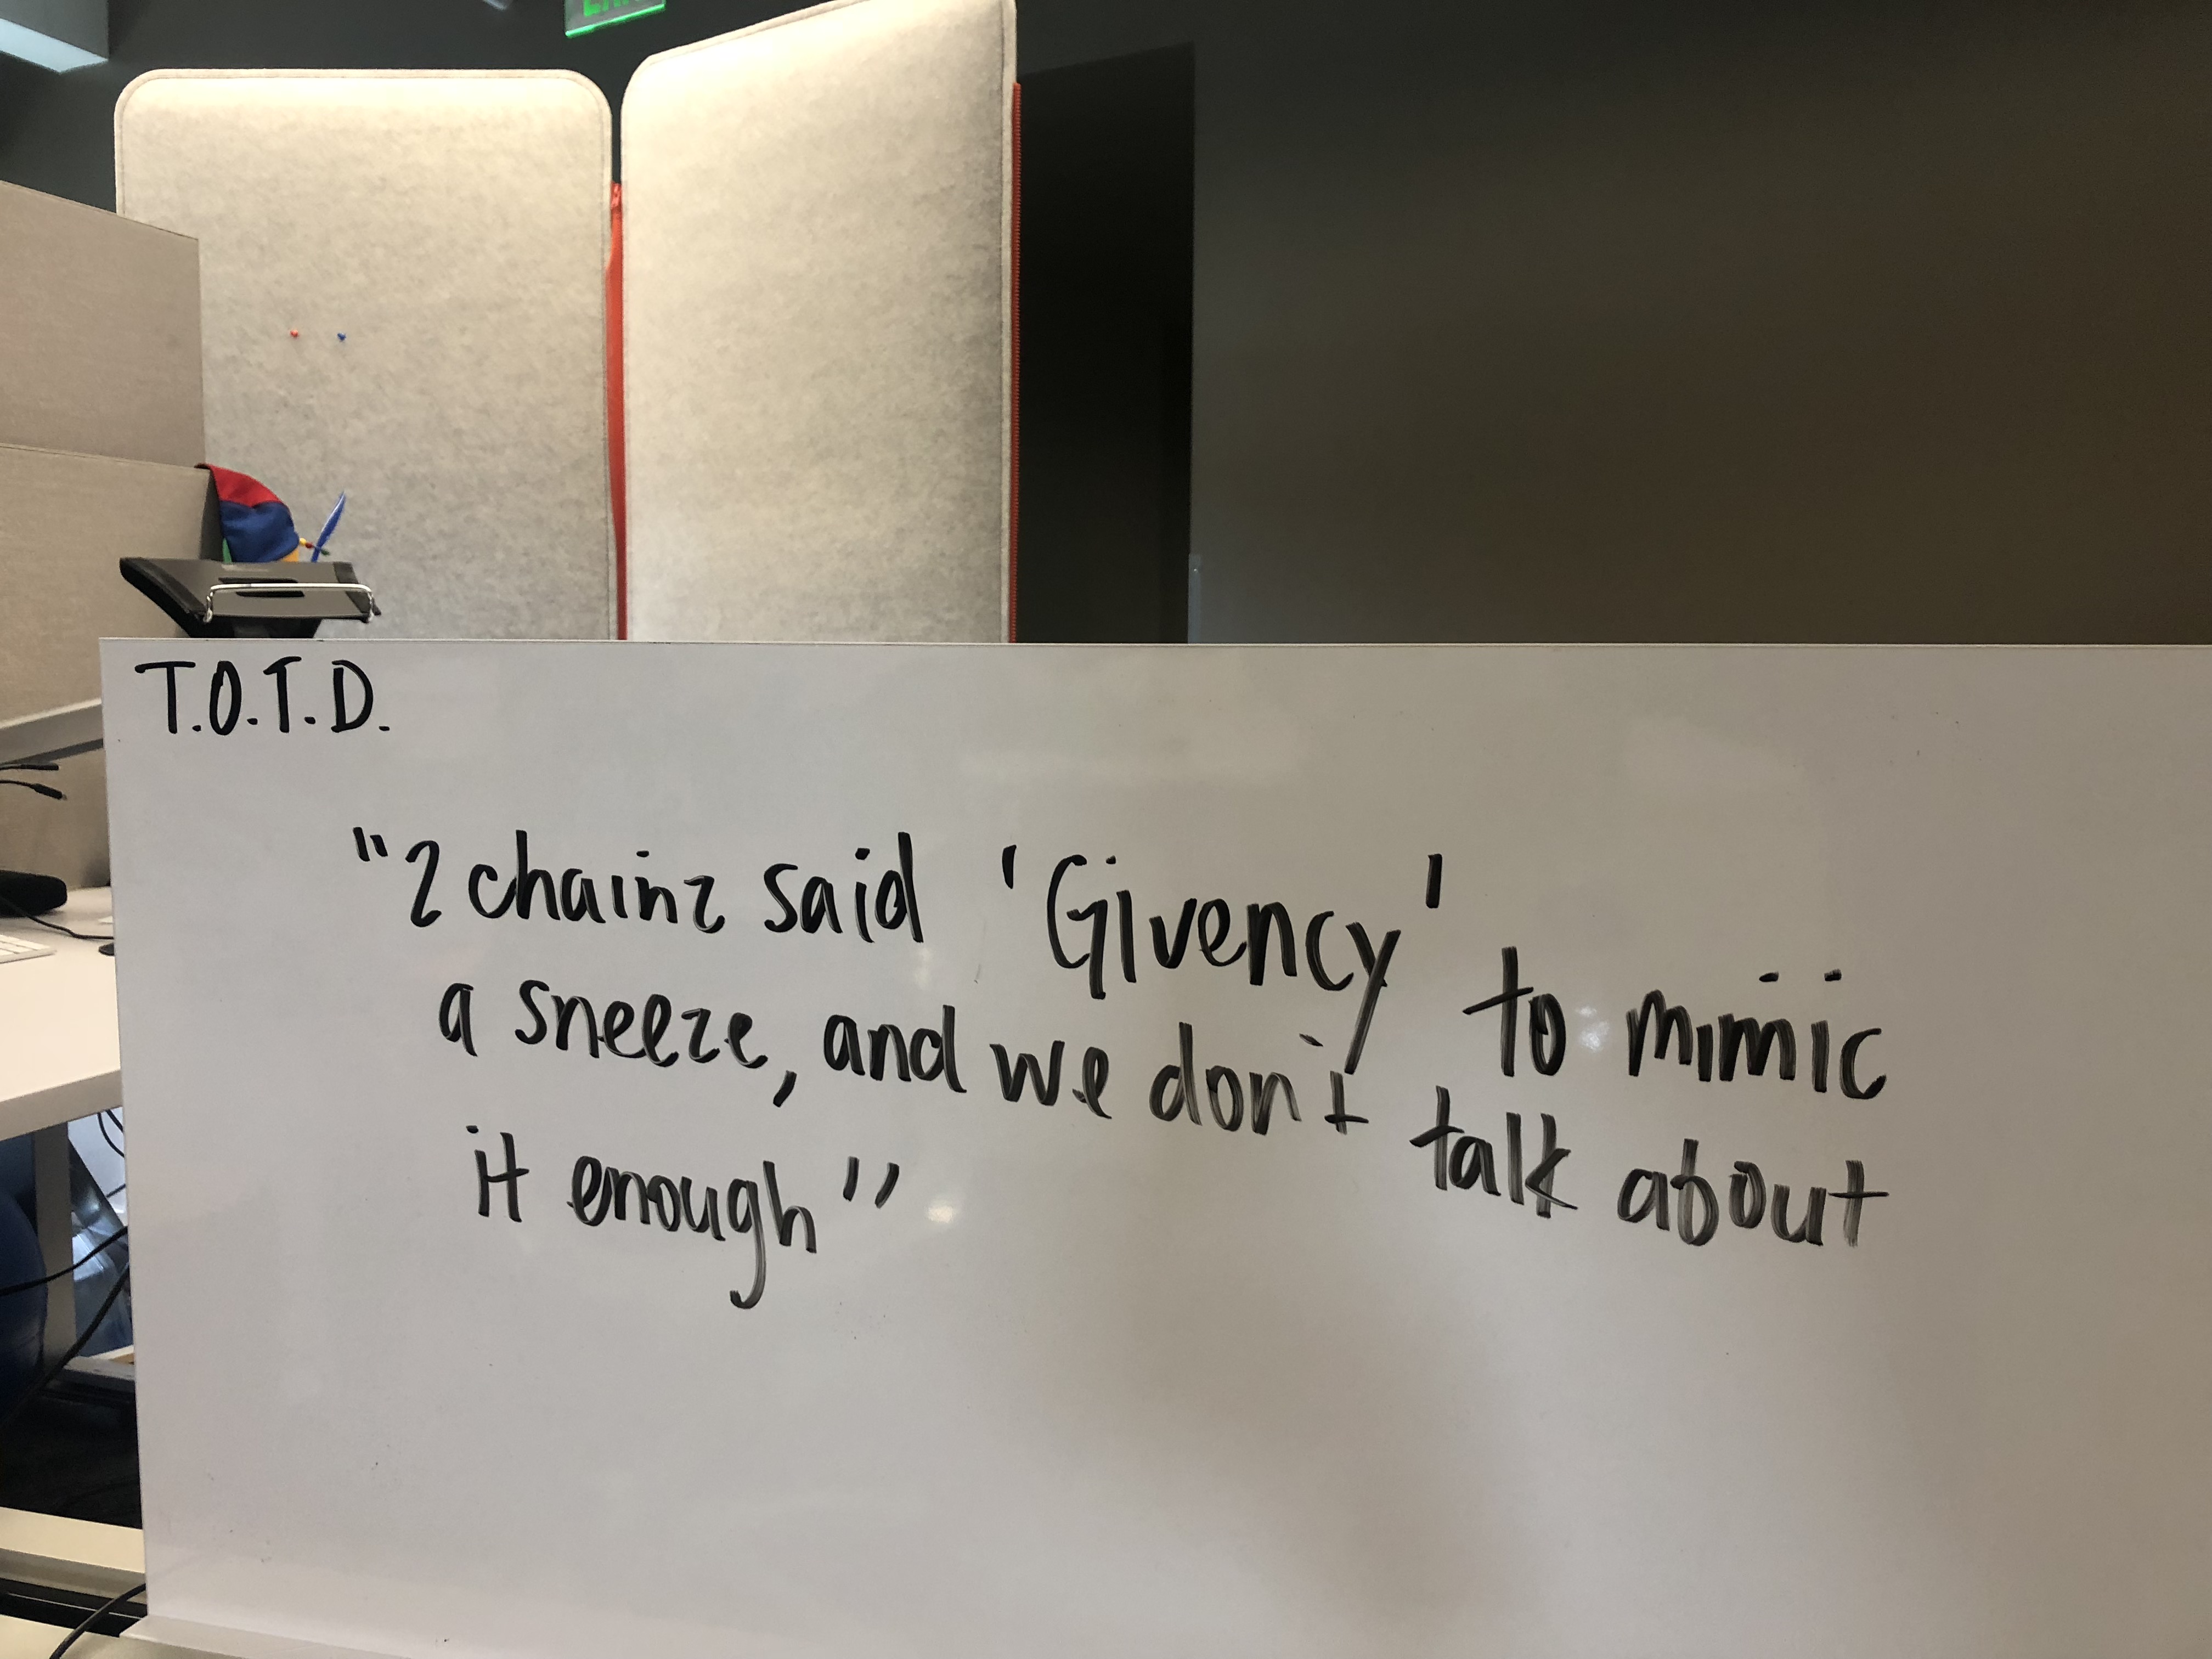 T.O.T.D.
"2 chainz said 'Givency' to mimic
a sneeze, and we don't talk about
it enough"